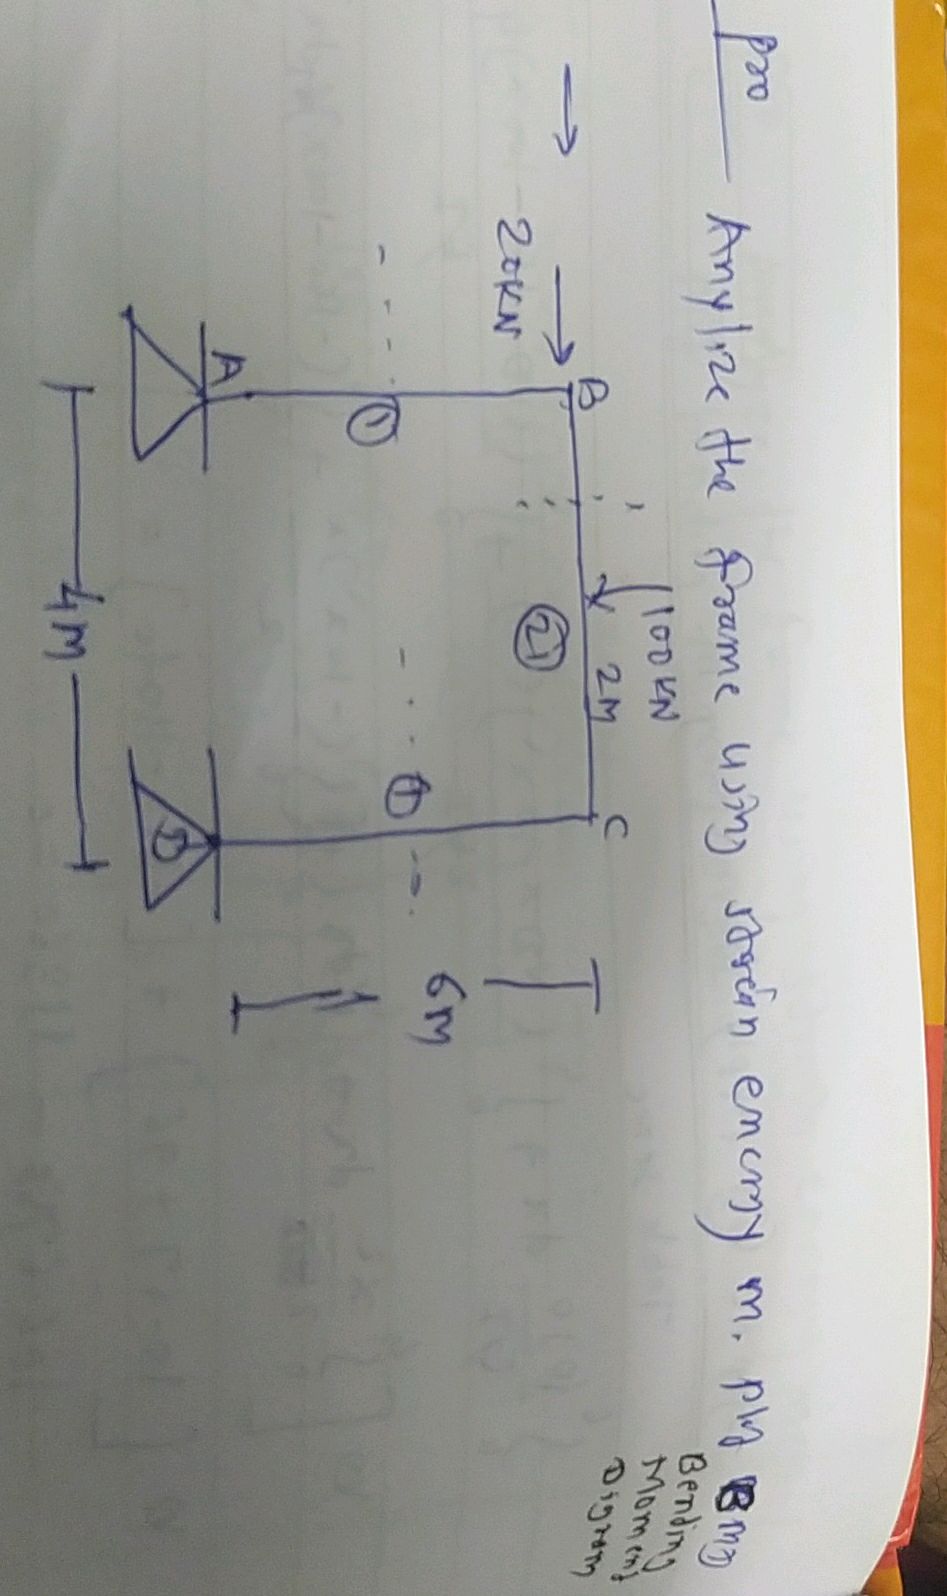 pro Anylize the frame using strein enemy m. plg BMD
Bending
Moment
Digram
100 KN
20KN
B
2M
C
2
1
1
6m
A
D
4M